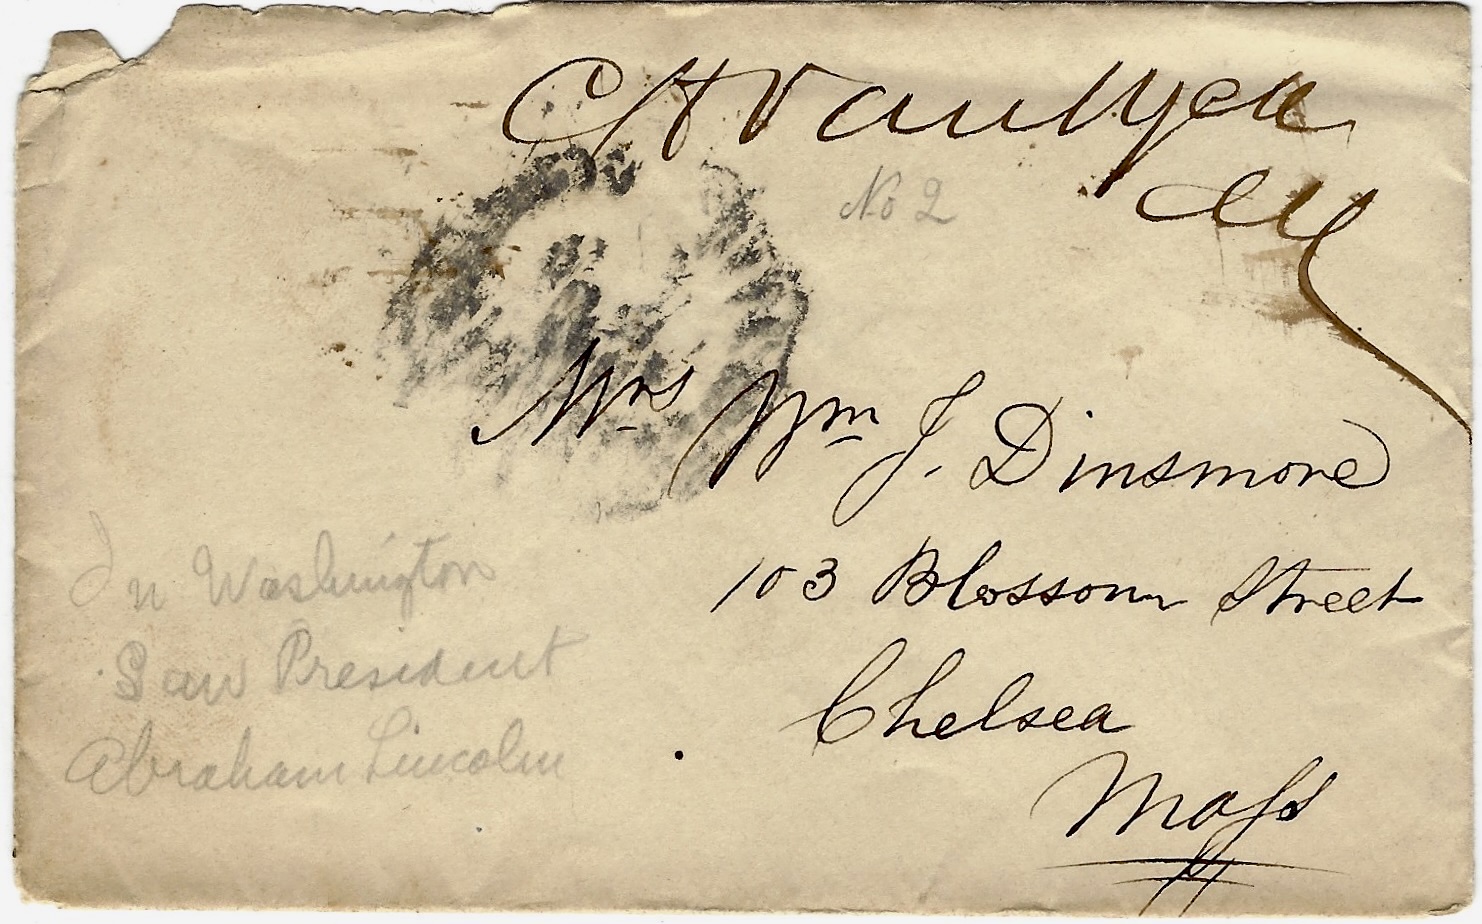 C H Van Wyck
MC
No 2
Mrs Wm J. Dinsmore
103 Blossom Street
Chelsea
Mass
In Washington
Saw President
Abraham Lincoln